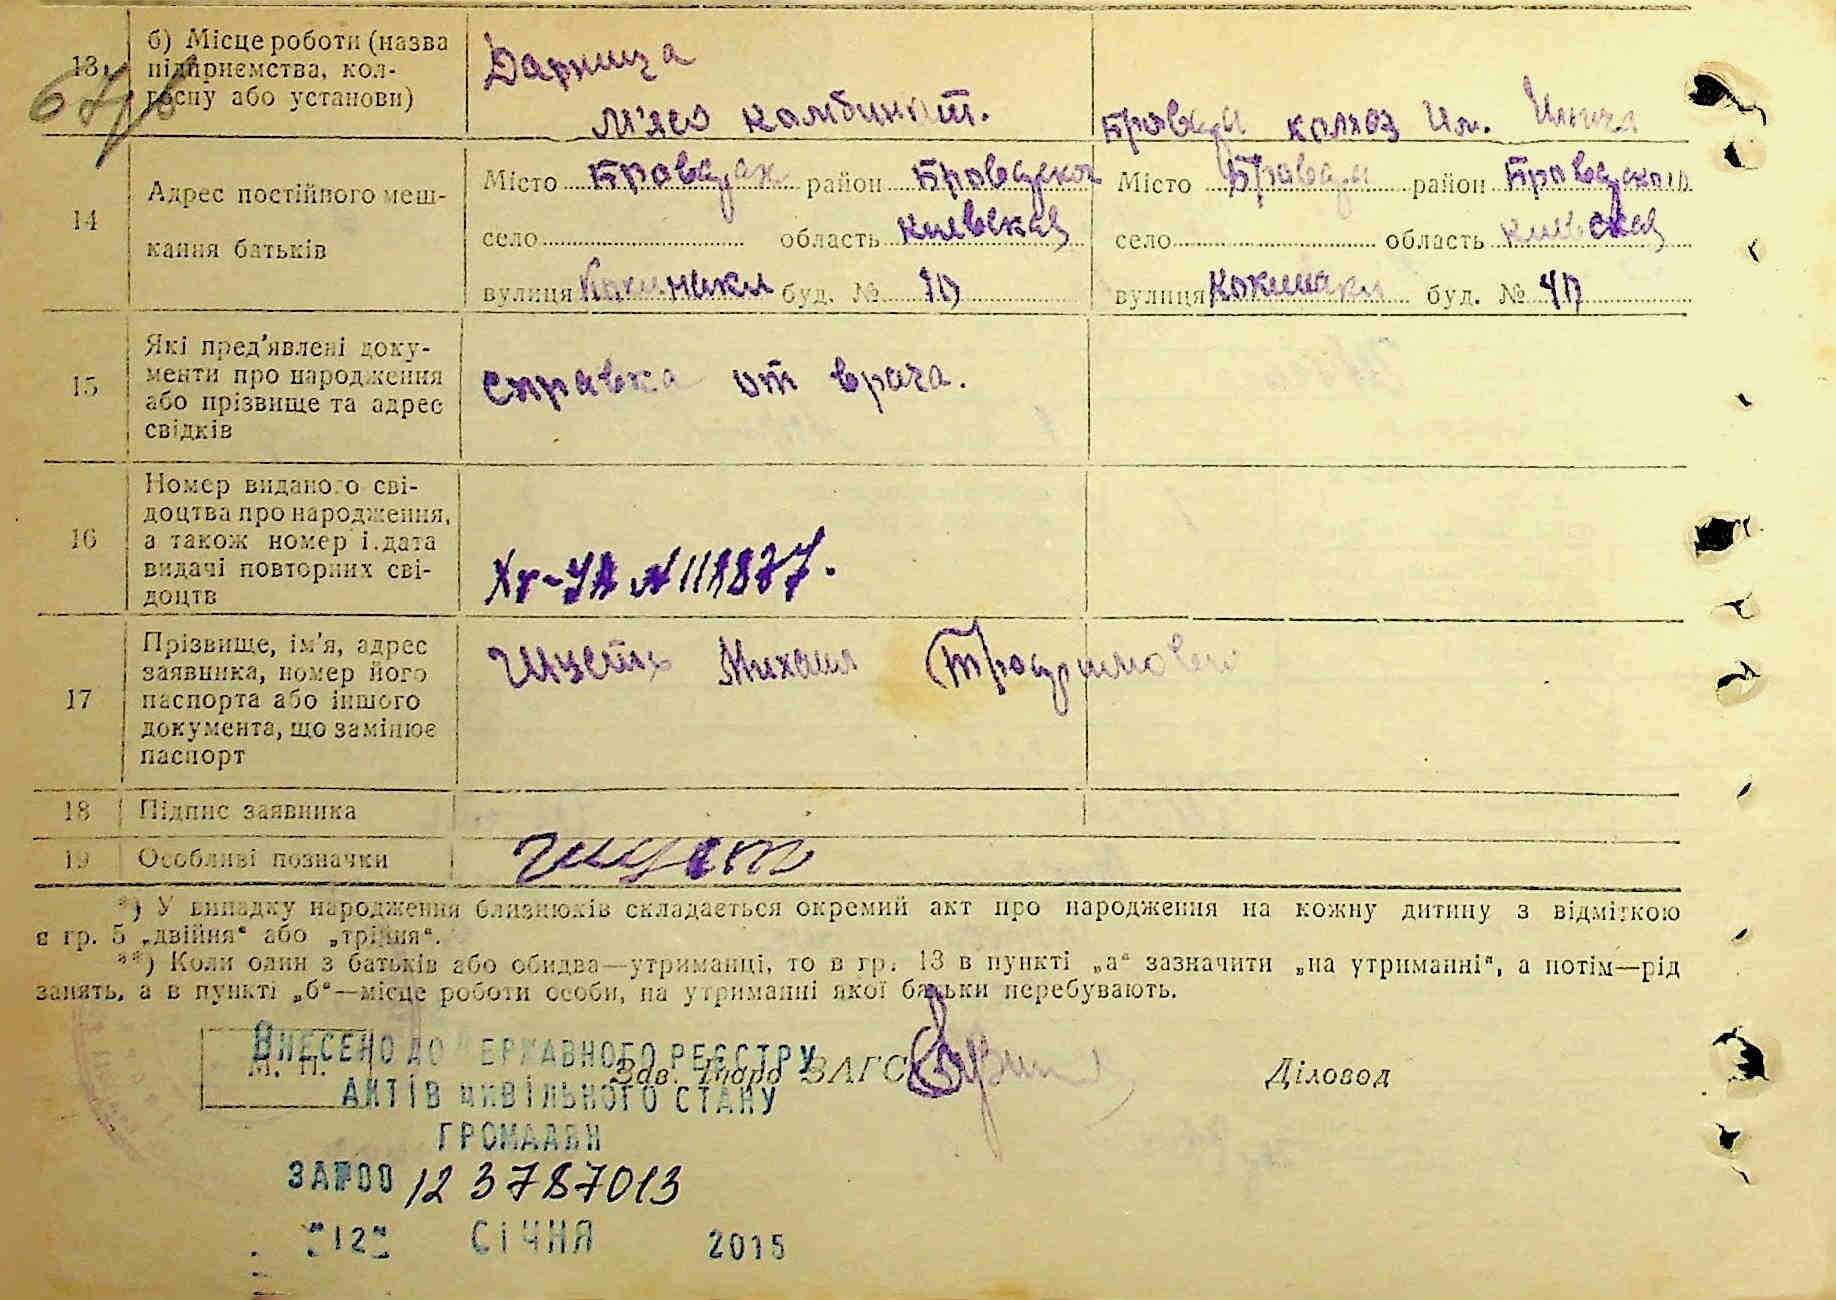 13. б) Місце роботи (назва
підприємства, кол-
госпу або установи)
67
Дарница
М'ясо комбинат.
Бровары колхоз Им. Ильича
14
Адрес постійного меш-
кання батьків
Місто Броварах район Броварской
село область Киевская
вулиця Кокинаки буд. №
Місто Бровары район Броварского
село область Киевская
вулиця Кокинаки буд. №
15
Які пред'явлені доку-
менти про народження
або прізвище та адрес
свідків
справка от врача.
16
Номер виданого сві-
доцтва про народження,
а також номер і дата
видачі повторних сві-
доцтв
17
Прізвище, ім'я, адрес
заявника, номер його
паспорта або іншого
документа, що замінює
паспорт
Михаил
18 Підпис заявника
19 Особливі позначки
*) У випадку народження близнюків складається окремий акт про народження на кожну дитину з відміткою
в гр. 5 „двійня" або „трійня".
**) Коли один з батьків або обидва—утриманці, то в гр. 13 в пункті „а" зазначити „на утриманні", а потім—рід
занять, а в пункті „б"—місце роботи особи, на утриманні якої батьки перебувають.
М. П.
Зав. ЗАГС
Діловод
ВНЕСЕНО ДО ДЕРЖАВНОГО РЕЄСТРУ
АКТІВ ЦИВІЛЬНОГО СТАНУ
ГРОМАДЯН
ЗА №00 123787013
"12" СІЧНЯ 2015